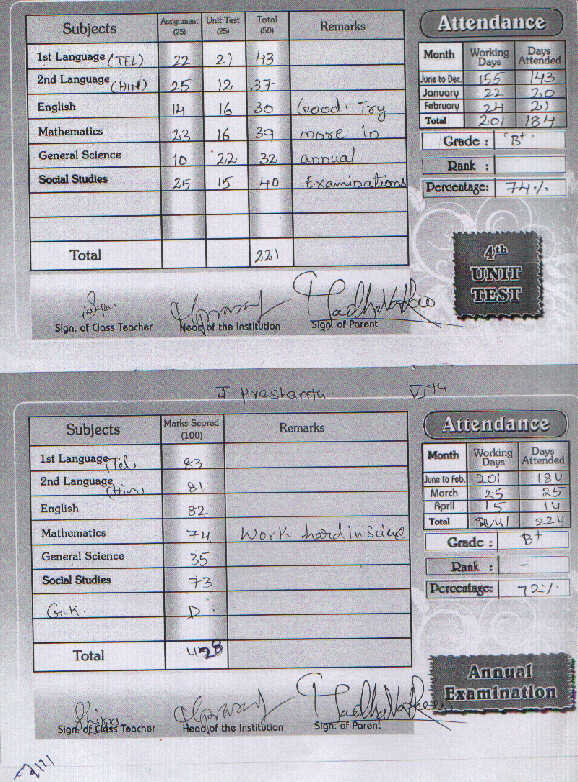 Subjects Assignment (25) Unit Test (25) Total (50) Remarks
1st Language (TEL) 22 21 43
2nd Language (HIN) 25 12 37
English 14 16 30 Good. Try
Mathematics 23 16 39 more in
General Science 10 22 32 annual
Social Studies 25 15 40 Examinations
Total 221
Sign. of Class Teacher Head of the Institution Sign. of Parent
Attendance
Month Working Days Days Attended
June to Dec. 155 143
January 22 20
February 24 21
Total 201 184
Grade : B+
Rank :
Percentage: 74%
4th
UNIT
TEST
J Prashanth VI
Subjects Marks Scored (100) Remarks
1st Language (Tel) 83
2nd Language (Hin) 81
English 82
Mathematics 74 Work hard in
General Science 35
Social Studies 73
G.K. D
Total 428
Sign. of Class Teacher Head of the Institution Sign. of Parent
Attendance
Month Working Days Days Attended
June to Feb. 201 184
March 25 25
April 15 14
Total 241 224
Grade : B+
Rank : -
Percentage: 72%
Annual
Examination